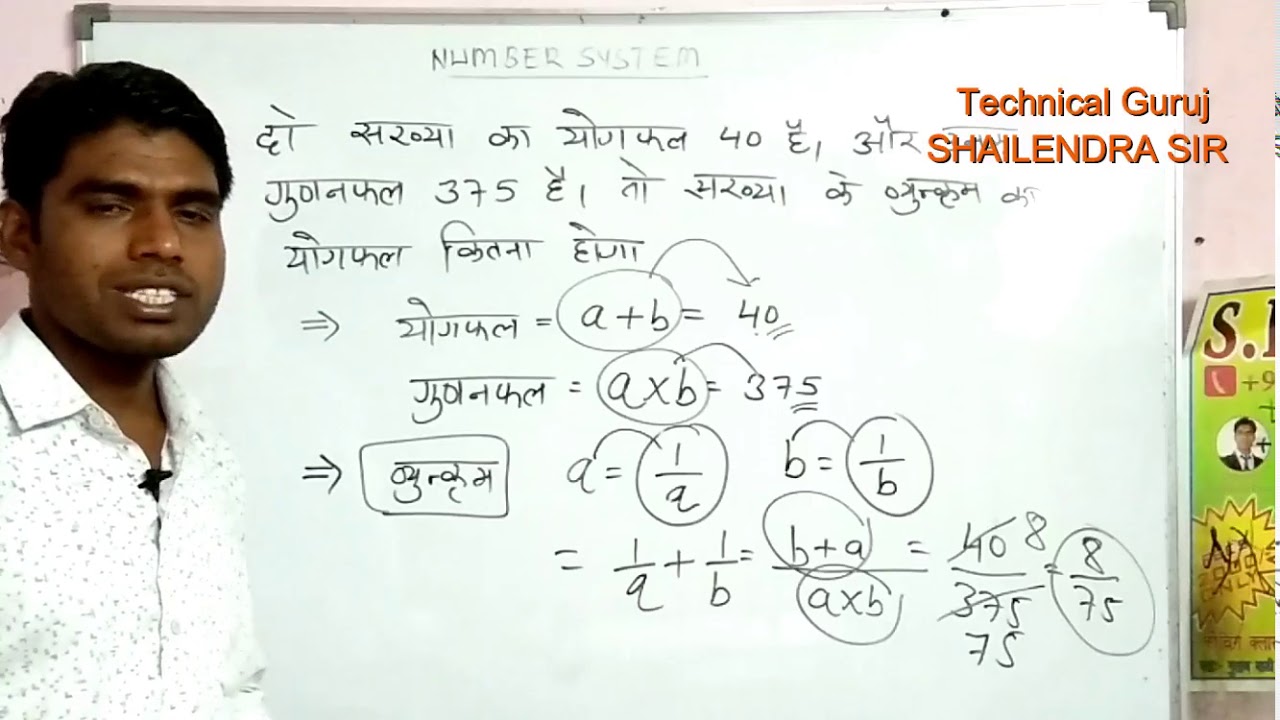 NUMBER SYSTEM
Technical Guruj
SHAILENDRA SIR
दो सख्या का योगफल 40 है, और
गुणनफल 375 है, तो सख्या के व्युत्क्रम का
योगफल कितना होगा
⇒ योगफल = a+b = 40
गुणनफल = a×b = 375
⇒ व्युत्क्रम a = 1/a b = 1/b
= 1/a + 1/b = b+a/a×b = 40/375 = 8/75
8
75
S.
+9